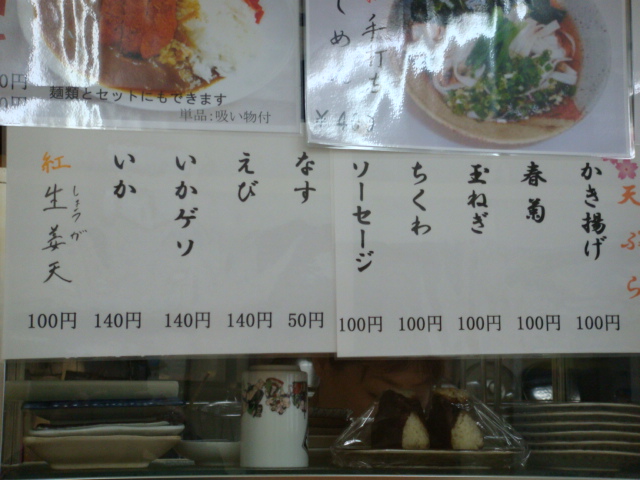 麺類とセットにもできます
単品:吸い物付
手打ち
天ぷら
かき揚げ
100円
春菊
100円
玉ねぎ
100円
ちくわ
100円
ソーセージ
100円
なす
50円
えび
140円
いかゲソ
140円
いか
140円
紅生姜天
しょうが
100円